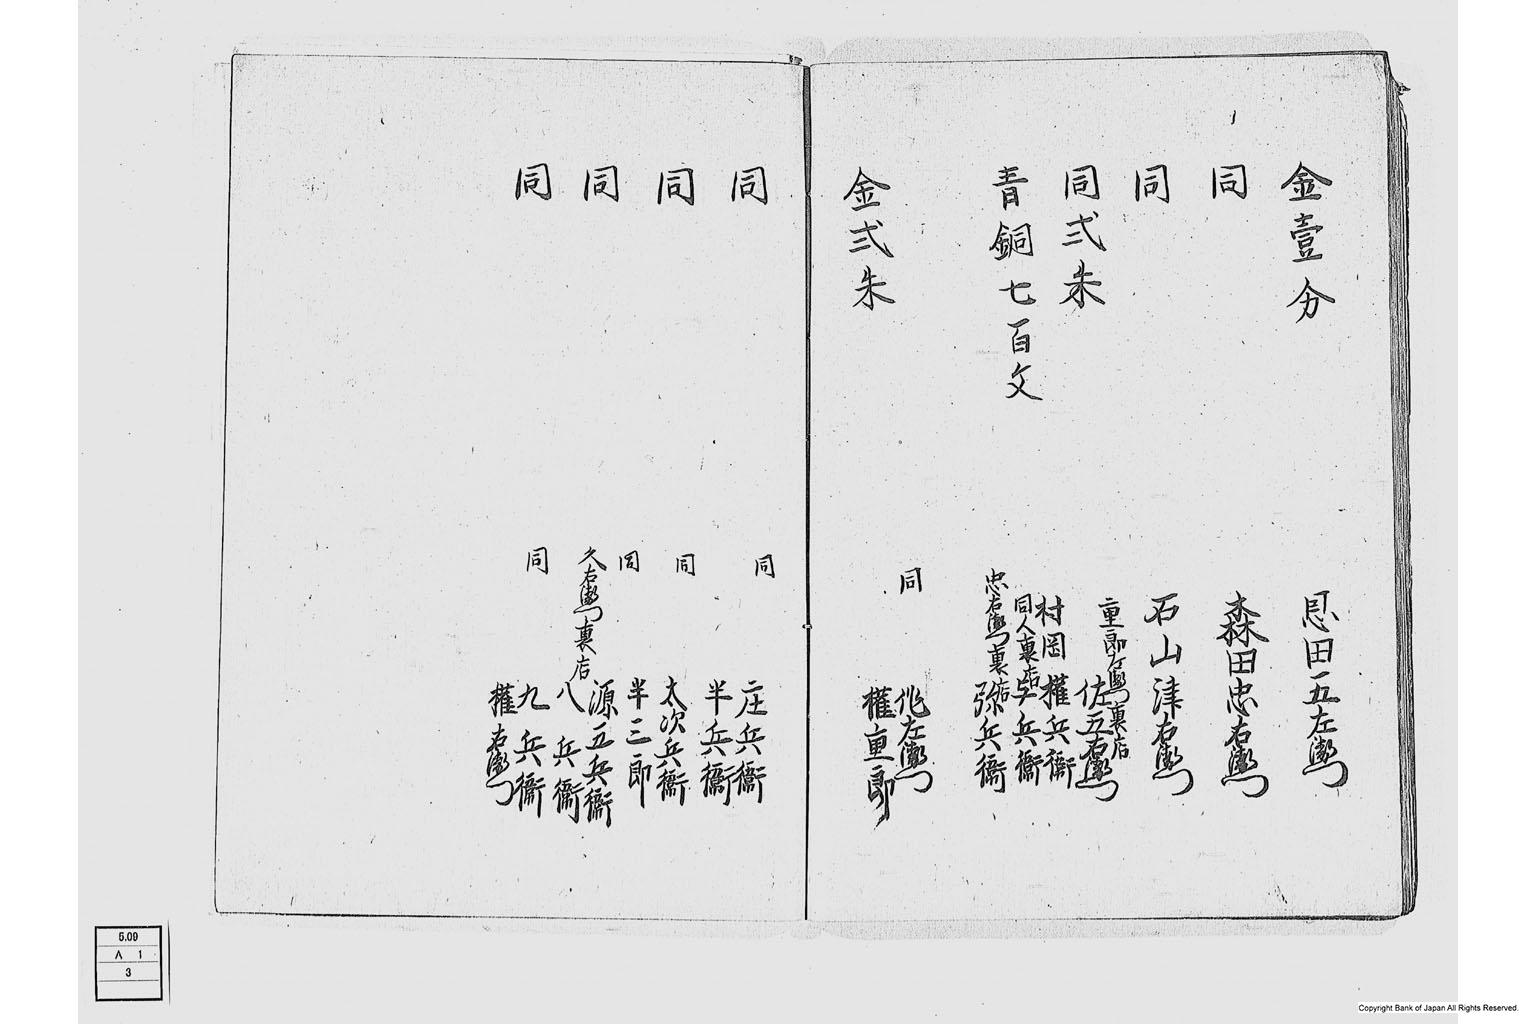 金壹分
恩田五左衛門
同
森田忠右衛門
同
石山津右衛門
同弐朱
重郎右衛門裏店
佐五右衛門
村岡権兵衛
青銅七百文
同人裏店
与兵衛
忠右衛門裏店
弥兵衛
金弐朱
同
作左衛門
権重郎
同
同
庄兵衛
半兵衛
同
同
太次兵衛
半三郎
同
同
源五兵衛
久右衛門裏店
八兵衛
同
同
九兵衛
権右衛門
5.09
A 1
3
Copyright Bank of Japan All Rights Reserved.